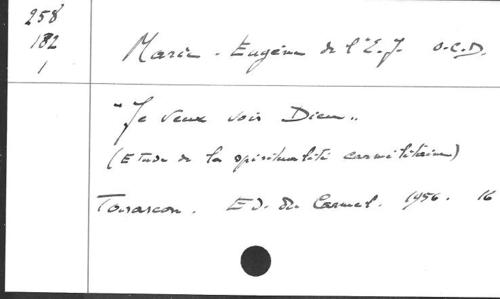 258
182
1
Marie-Eugène de l'E.J. O.C.D.
"Je veux voir Dieu"
(Etude de la spiritualité carmélitaine)
Tarascon. Ed. du Carmel. 1956. 16